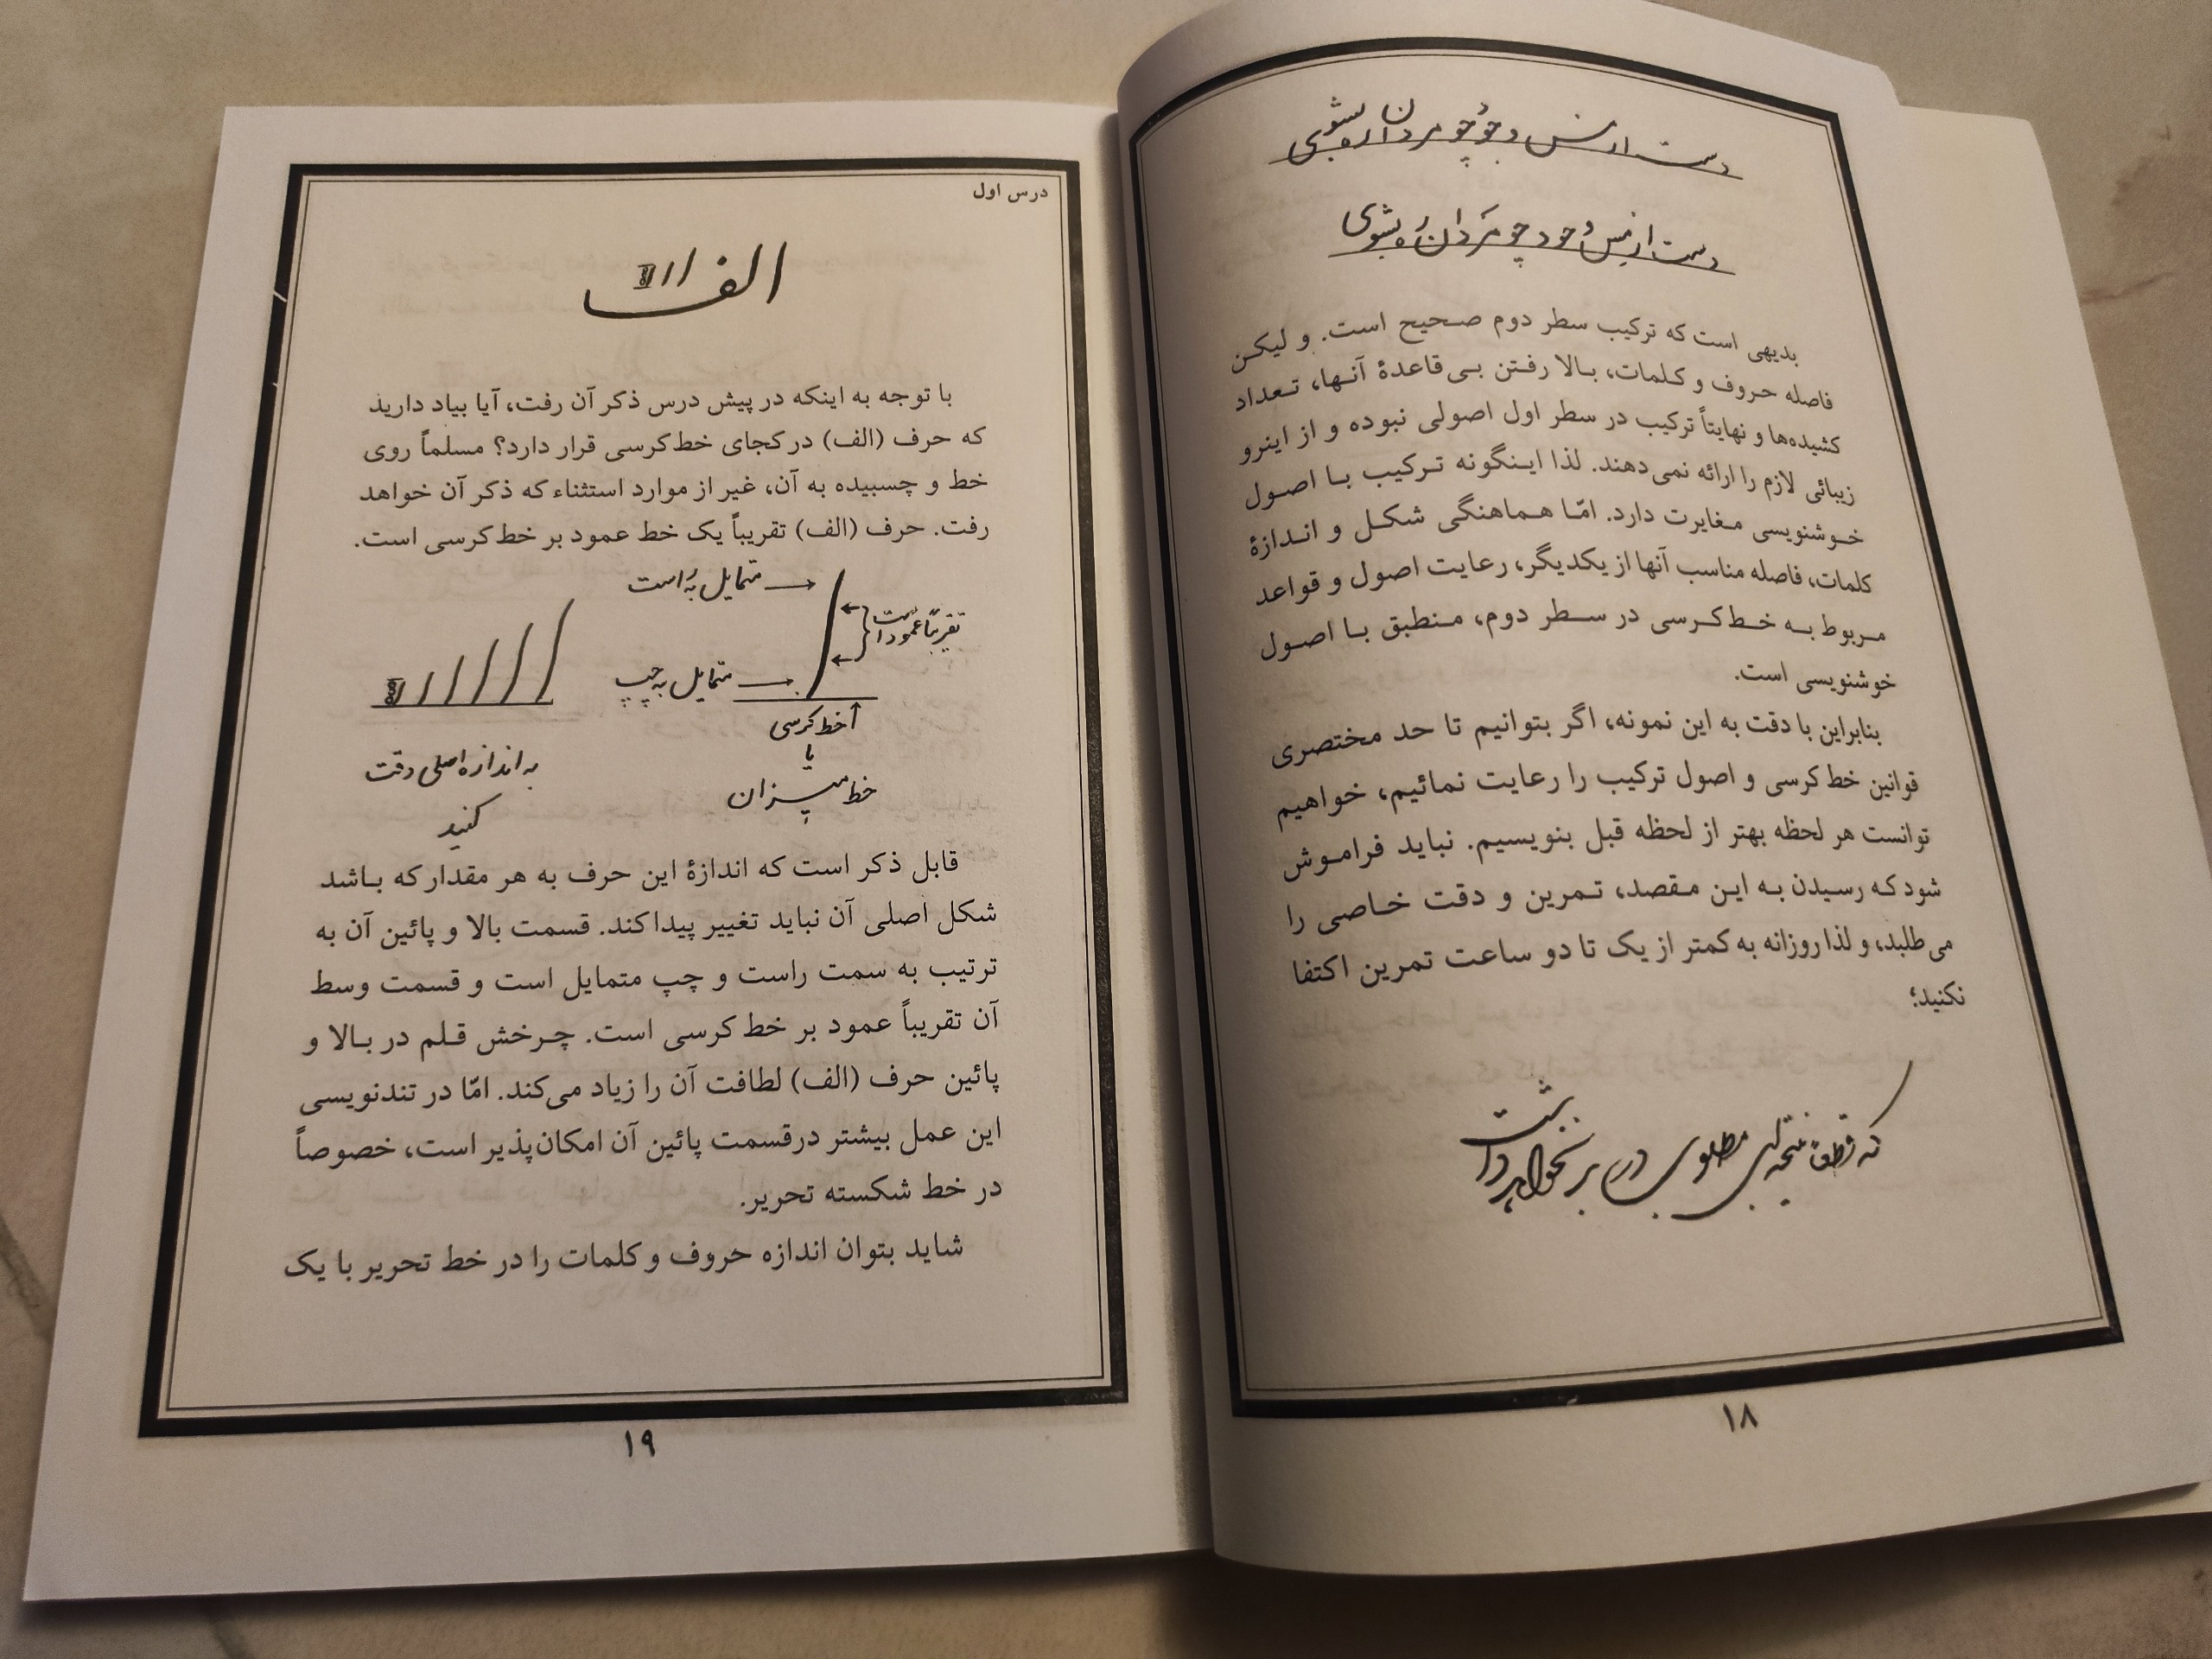 دست از مس وجود چو مردان ره بشوی
دست از مس وجود چو مردان ره بشوی
بدیهی است که ترکیب سطر دوم صحیح است. و لیکن
فاصله حروف و کلمات، بالا رفتن بی‌قاعدهٔ آنها، تعداد
کشیده‌ها و نهایتاً ترکیب در سطر اول اصولی نبوده و از اینرو
زیبائی لازم را ارائه نمی‌دهند. لذا اینگونه ترکیب با اصول
خوشنویسی مغایرت دارد. امّا هماهنگی شکل و اندازهٔ
کلمات، فاصله مناسب آنها از یکدیگر، رعایت اصول و قواعد
مربوط به خط‌کرسی در سطر دوم، منطبق با اصول
خوشنویسی است.
بنابراین با دقت به این نمونه، اگر بتوانیم تا حد مختصری
قوانین خط‌کرسی و اصول ترکیب را رعایت نمائیم، خواهیم
توانست هر لحظه بهتر از لحظه قبل بنویسیم. نباید فراموش
شود که رسیدن به این مقصد، تمرین و دقت خاصی را
می‌طلبد، و لذا روزانه به کمتر از یک تا دو ساعت تمرین اکتفا
نکنید؛
که قطعاً نتیجه‌ای مطلوبی در بر نخواهد داشت
۱۸
درس اول
الف ااا
با توجه به اینکه در پیش درس ذکر آن رفت، آیا بیاد دارید
که حرف (الف) در کجای خط‌کرسی قرار دارد؟ مسلماً روی
خط و چسبیده به آن، غیر از موارد استثناء که ذکر آن خواهد
رفت. حرف (الف) تقریباً یک خط عمود بر خط‌کرسی است.
متمایل به راست
تقریباً عمود است
متمایل به چپ
خط کرسی
یا
خط میزان
به اندازه اصلی دقت
کنید
قابل ذکر است که اندازهٔ این حرف به هر مقدار که باشد
شکل اصلی آن نباید تغییر پیدا کند. قسمت بالا و پائین آن به
ترتیب به سمت راست و چپ متمایل است و قسمت وسط
آن تقریباً عمود بر خط کرسی است. چرخش قلم در بالا و
پائین حرف (الف) لطافت آن را زیاد می‌کند. امّا در تندنویسی
این عمل بیشتر درقسمت پائین آن امکان‌پذیر است، خصوصاً
در خط شکسته تحریر.
شاید بتوان اندازه حروف و کلمات را در خط تحریر با یک
۱۹